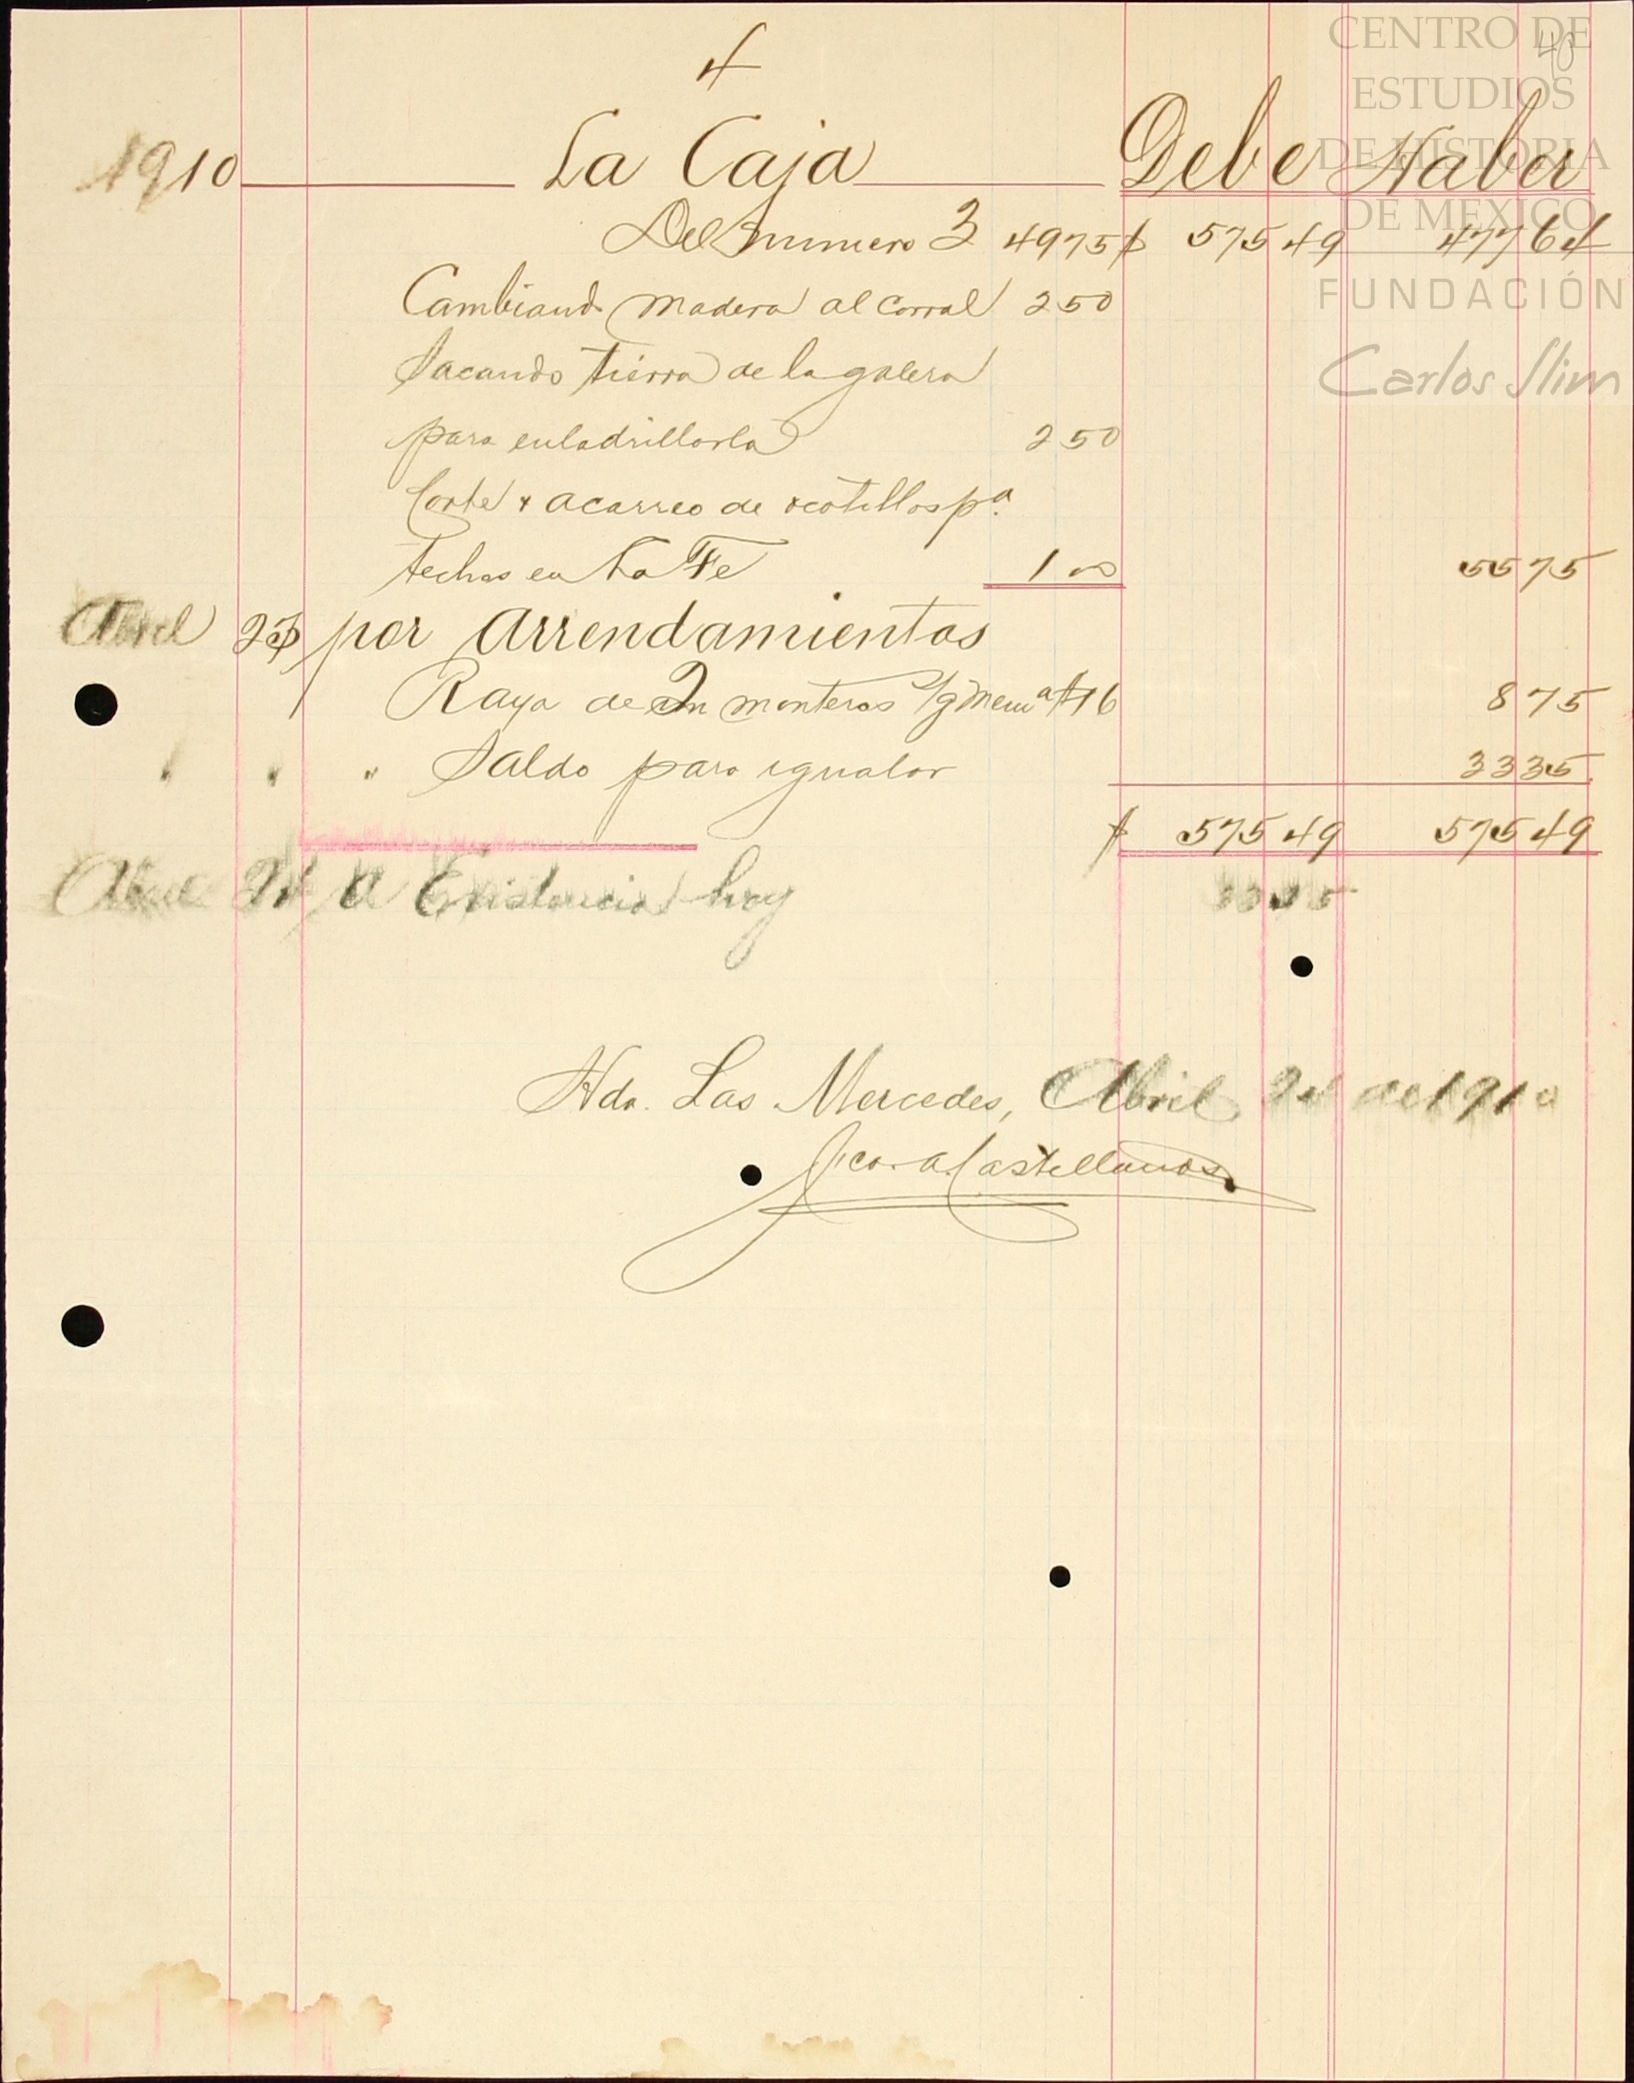 4
40
CENTRO DE
ESTUDIOS
DE HISTORIA
DE MEXICO
FUNDACIÓN
Carlos Slim
1910 La Caja Debe Haber
Del numero 3 4975 $ 575 49 477 64
Cambiando madera al corral 2 50
Sacando tierra de la galera
para enladrillarla 2 50
Corte y acarreo de ocotillos pª
techos en La Fe 1 00 55 75
Abril 23 por Arrendamientos
Raya de monteros s/g Memª #16 8 75
" " " Saldo para igualar 33 35
$ 575 49 575 49
Abril 24 A Existencia hoy 33 35
Hda. Las Mercedes, Abril 24 de 1910
Fco. A. Castellanos